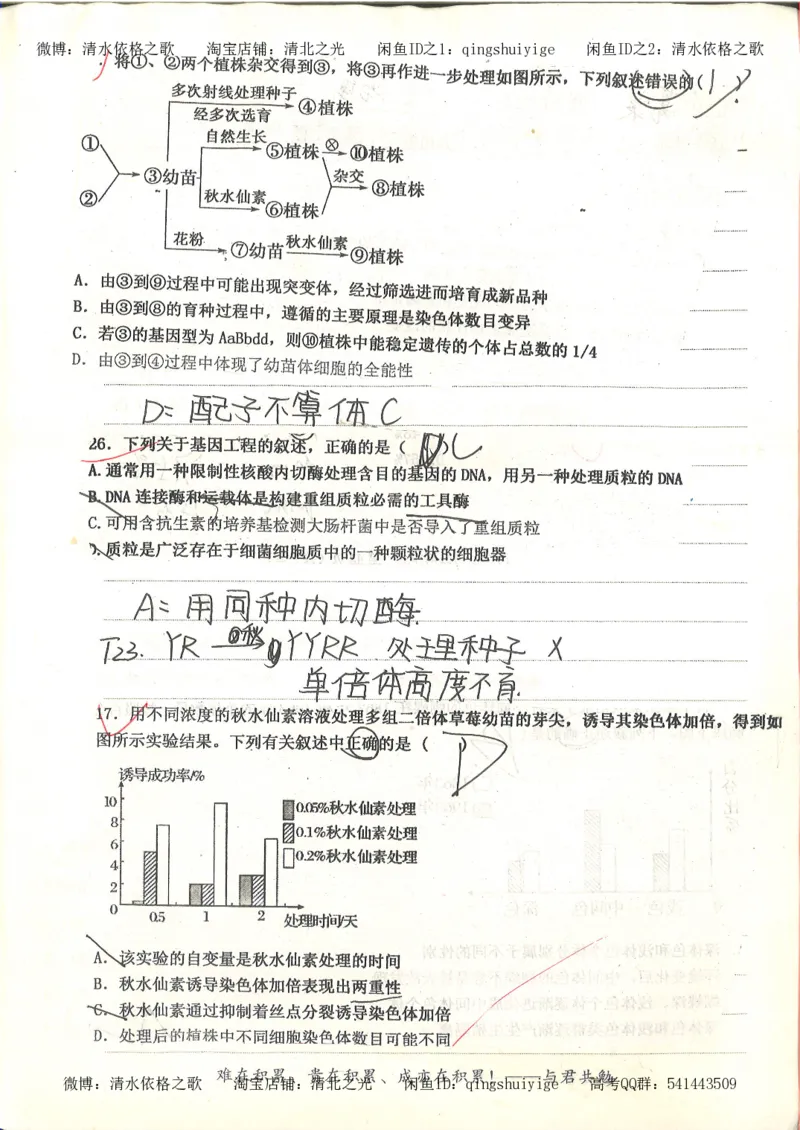 微博：清水依格之歌 淘宝店铺：清北之光 闲鱼ID之1：qingshuiyige 闲鱼ID之2：清水依格之歌
将①、②两个植株杂交得到③，将③再作进一步处理如图所示，下列叙述错误的( )
多次射线处理种子
经多次选育
④植株
自然生长
① ⑤植株 ⊗ ⑩植株
③幼苗 杂交 ⑧植株
② 秋水仙素 ⑥植株
花粉 ⑦幼苗 秋水仙素 ⑨植株
A．由③到⑨过程中可能出现突变体，经过筛选进而培育成新品种
B．由③到⑧的育种过程中，遵循的主要原理是染色体数目变异
C．若③的基因型为 AaBbdd，则⑩植株中能稳定遗传的个体占总数的 1/4
D．由③到④过程中体现了幼苗体细胞的全能性
D= 配子不算体C
26．下列关于基因工程的叙述，正确的是（ ）C
A.通常用一种限制性核酸内切酶处理含目的基因的 DNA，用另一种处理质粒的 DNA
B.DNA 连接酶和运载体是构建重组质粒必需的工具酶
C.可用含抗生素的培养基检测大肠杆菌中是否导入了重组质粒
D.质粒是广泛存在于细菌细胞质中的一种颗粒状的细胞器
A= 用同种内切酶
T23. YR 秋 YYRR 处理种子 X
单倍体高度不育
17．用不同浓度的秋水仙素溶液处理多组二倍体草莓幼苗的芽尖，诱导其染色体加倍，得到如
图所示实验结果。下列有关叙述中正确的是（ ）D
诱导成功率/%
10
8
6
4
2
0
0.05%秋水仙素处理
0.1%秋水仙素处理
0.2%秋水仙素处理
0.5 1 2 处理时间/天
A．该实验的自变量是秋水仙素处理的时间
B．秋水仙素诱导染色体加倍表现出两重性
C．秋水仙素通过抑制着丝点分裂诱导染色体加倍
D．处理后的植株中不同细胞染色体数目可能不同
难在积累，贵在积累、成亦在积累！——与君共勉
微博：清水依格之歌 淘宝店铺：清北之光 闲鱼ID：qingshuiyige 高考QQ群：541443509